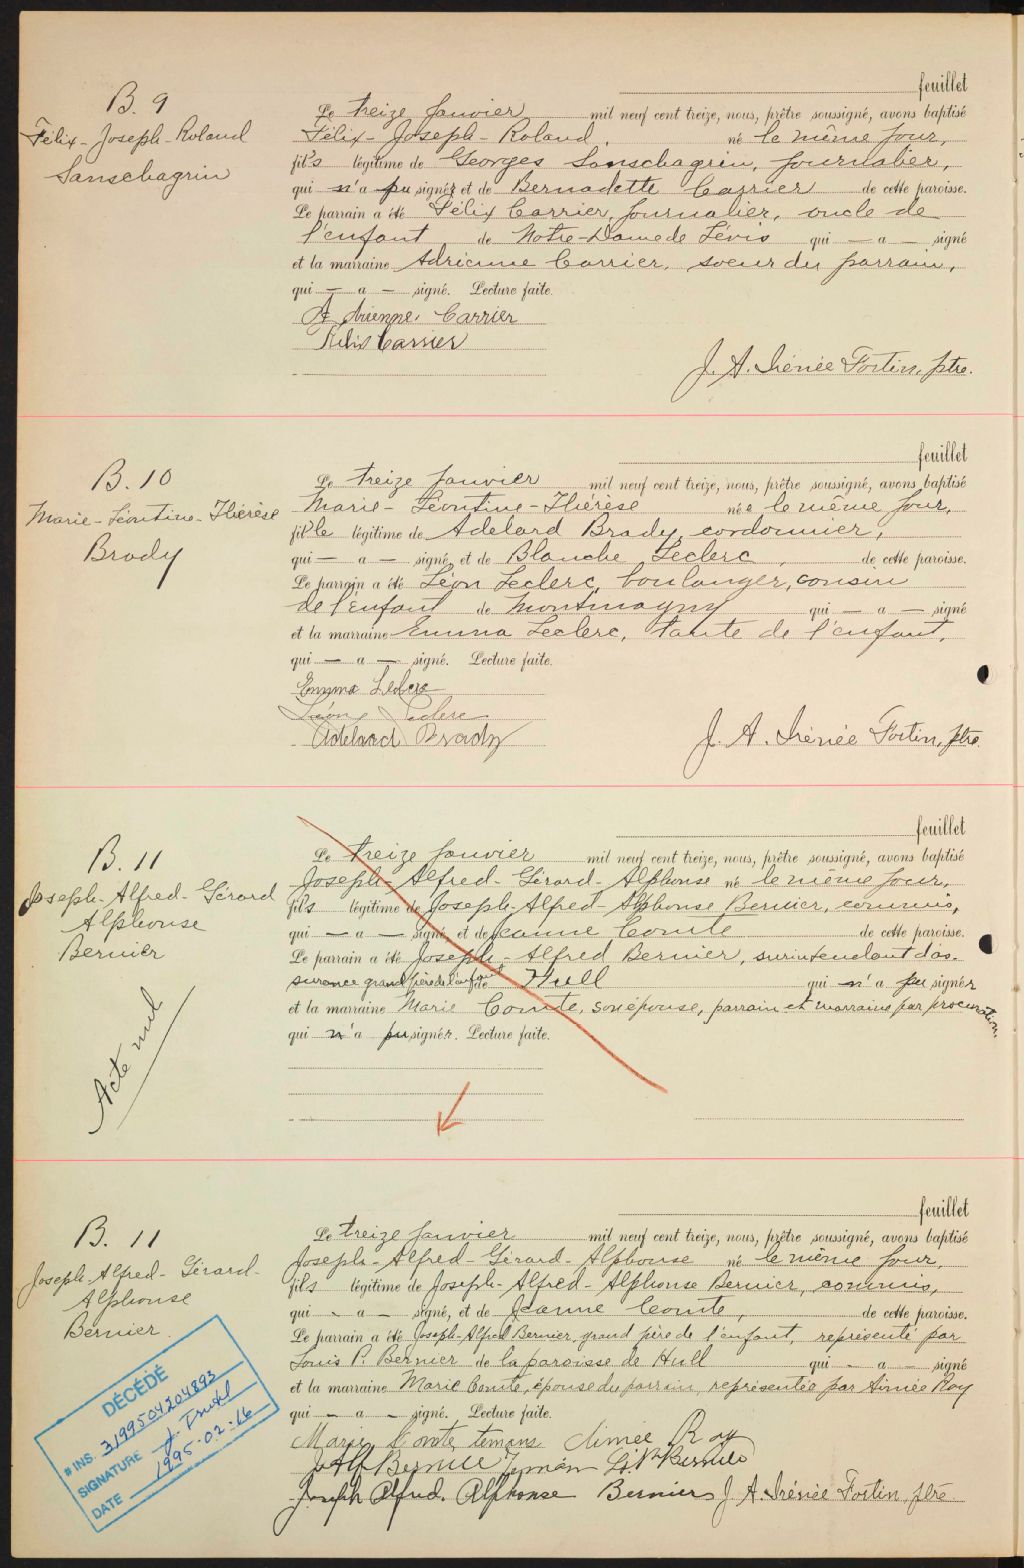 feuillet
B. 9
Félix-Joseph-Roland
Sanschagrin
Le treize janvier mil neuf cent treize, nous, prêtre soussigné, avons baptisé
Félix-Joseph-Roland, né le même jour,
fils légitime de Georges Sanschagrin, journalier,
qui n'a pu signer et de Bernadette Carrier de cette paroisse.
Le parrain a été Félix Carrier, journalier, oncle de
l'enfant de Notre-Dame de Lévis qui — a — signé
et la marraine Adrienne Carrier, soeur du parrain,
qui — a — signé. Lecture faite.
Adrienne Carrier
Félix Carrier
J. A. Irénée Fortin, ptre.
feuillet
B. 10
Marie-Léontine-Thérèse
Brady
Le treize janvier mil neuf cent treize, nous, prêtre soussigné, avons baptisé
Marie-Léontine-Thérèse née le même jour,
fille légitime de Adelard Brady, cordonnier,
qui — a — signé, et de Blanche Leclerc, de cette paroisse.
Le parrain a été Léon Leclerc, boulanger, cousin
de l'enfant de Montmagny qui — a — signé
et la marraine Emma Leclerc, tante de l'enfant,
qui — a — signé. Lecture faite.
Emma Leclerc
Léon Leclerc
Adelard Brady
J. A. Irénée Fortin, ptre.
feuillet
B. 11
Joseph-Alfred-Gérard
Alphonse
Bernier
Acte nul
Le treize janvier mil neuf cent treize, nous, prêtre soussigné, avons baptisé
Joseph-Alfred-Gérard-Alphonse né le même jour,
fils légitime de Joseph-Alfred-Alphonse Bernier, commis,
qui — a — signé, et de Jeanne Comte de cette paroisse.
Le parrain a été Joseph-Alfred Bernier, surintendant d'as-
surance grand père de l'enfant de Hull qui n'a pu signer
et la marraine Marie Comte, son épouse, parrain et marraine par procuration,
qui n'a pu signer. Lecture faite.
feuillet
B. 11
Joseph-Alfred-Gérard-
Alphonse
Bernier
Le treize janvier mil neuf cent treize, nous, prêtre soussigné, avons baptisé
Joseph-Alfred-Gérard-Alphonse né le même jour,
fils légitime de Joseph-Alfred-Alphonse Bernier, commis,
qui - a - signé, et de Jeanne Comte, de cette paroisse.
Le parrain a été Joseph-Alfred Bernier, grand père de l'enfant, représenté par
Louis P. Bernier de la paroisse de Hull qui - a - signé
et la marraine Marie Comte, épouse du parrain, représentée par Aimée Roy
qui - a - signé. Lecture faite.
Marie Comte Aimée Roy
J. Alf Bernier
Joseph Alfred Alphonse Bernier J. A. Irénée Fortin, ptre
DÉCÉDÉ
# INS. 3199504204893
SIGNATURE
DATE 1995-02-16